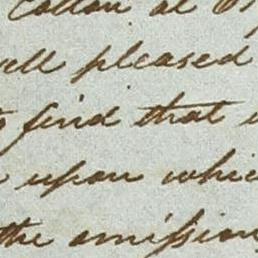 Cotton at
well pleased
to find that
upon which
the omission